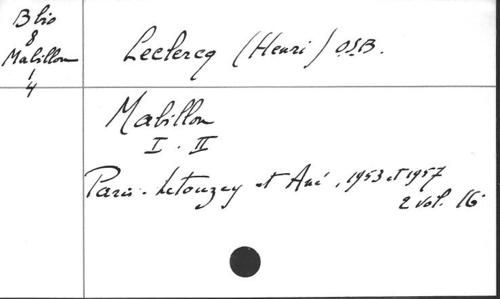 B bio
8
Mabillon
1
4
Leclercq (Henri) O.S.B.
Mabillon
I. II
Paris. Letouzey et Ané, 1953 et 1957
2 vol. 16